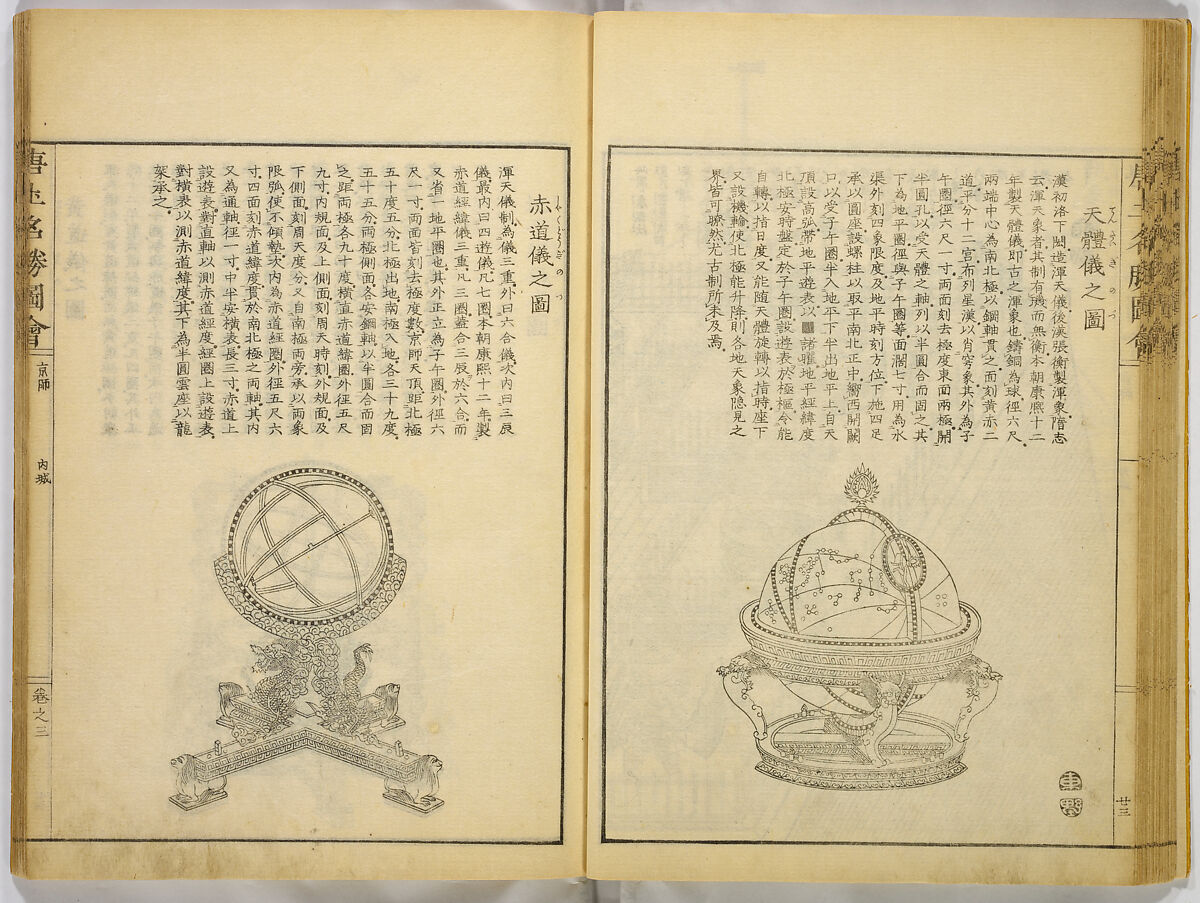 唐土名勝圖會
天體儀之圖
漢初洛下閎造渾天儀後漢張衡製渾象隋志
云渾天象者其制有璣而無衡本朝康熙十二
年製天體儀即古之渾象也鑄銅為球徑六尺
兩端中心為南北極以鋼軸貫之面刻黃赤二
道平分十二宮布列星漢以肖穹象其外為子
午圈徑六尺一寸兩面刻去極度東面兩極開
半圓孔以受天體之軸列以半圓合而固之其
下為地平圈徑與子午圈等面濶七寸用為水
渠外刻四象限度及地平時刻方位下施四足
承以圓座設螺柱以取平南北正中嚮西開闕
口以受子午圈半入地平下半出地平上自天
頂設高弧帶地平遊表以■諸曜地平經緯度
北極安時盤定於子午圈設遊表於極樞令能
自轉以指日度又能隨天體旋轉以指時座下
又設機輪使北極能升降則各地天象隱見之
界皆可瞭然尤古制所未及焉
廿三
赤道儀之圖
渾天儀制為儀三重外曰六合儀次內曰三辰
儀最內曰四遊儀凡七圈本朝康熙十二年製
赤道經緯儀三重凡三圈蓋合三辰於六合而
又省一地平圈也其外正立為子午圈外徑六
尺一寸兩面皆刻去極度數京師天頂距北極
五十度五分北極出地南極入地各三十九度
五十五分兩極側面各安鋼軸以半圓合而固
之距兩極各九十度橫直赤道緯圈外徑五尺
九寸內規面及上側面刻周天時刻外規面及
下側面刻周天度分又自南極兩旁承以兩象
限弧使不傾墊次內為赤道經圈外徑五尺六
寸四面刻赤道緯度貫於南北極之兩軸其內
又為通軸徑一寸中半安橫表長三寸赤道上
設遊表對直軸以測赤道經度經圈上設遊表
對橫表以測赤道緯度其下為半圓雲座以龍
架承之
唐土名勝圖會
京師
內城
卷之三